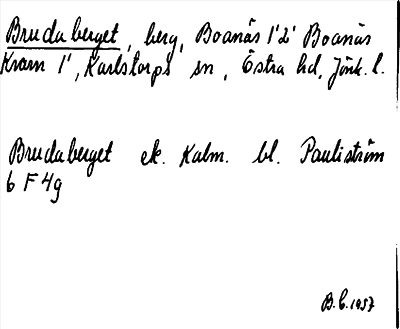 Bruda berget, berg, Boanäs 1'2' Boanäs
Kvarn 1', Karlstorps sn, Östra hd, Jönk. l.
Brudaberget ek. Kalm. bl. Pauliström
6 F 4g
B.C. 1957